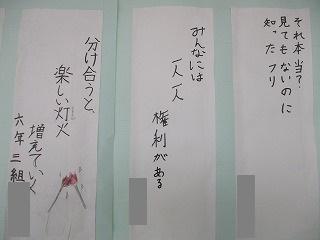 それ本当？
見てもないのに
知ったフリ
みんなには
一人一人
権利がある
分け合うと、
楽しい灯火
増えていく
六年三組